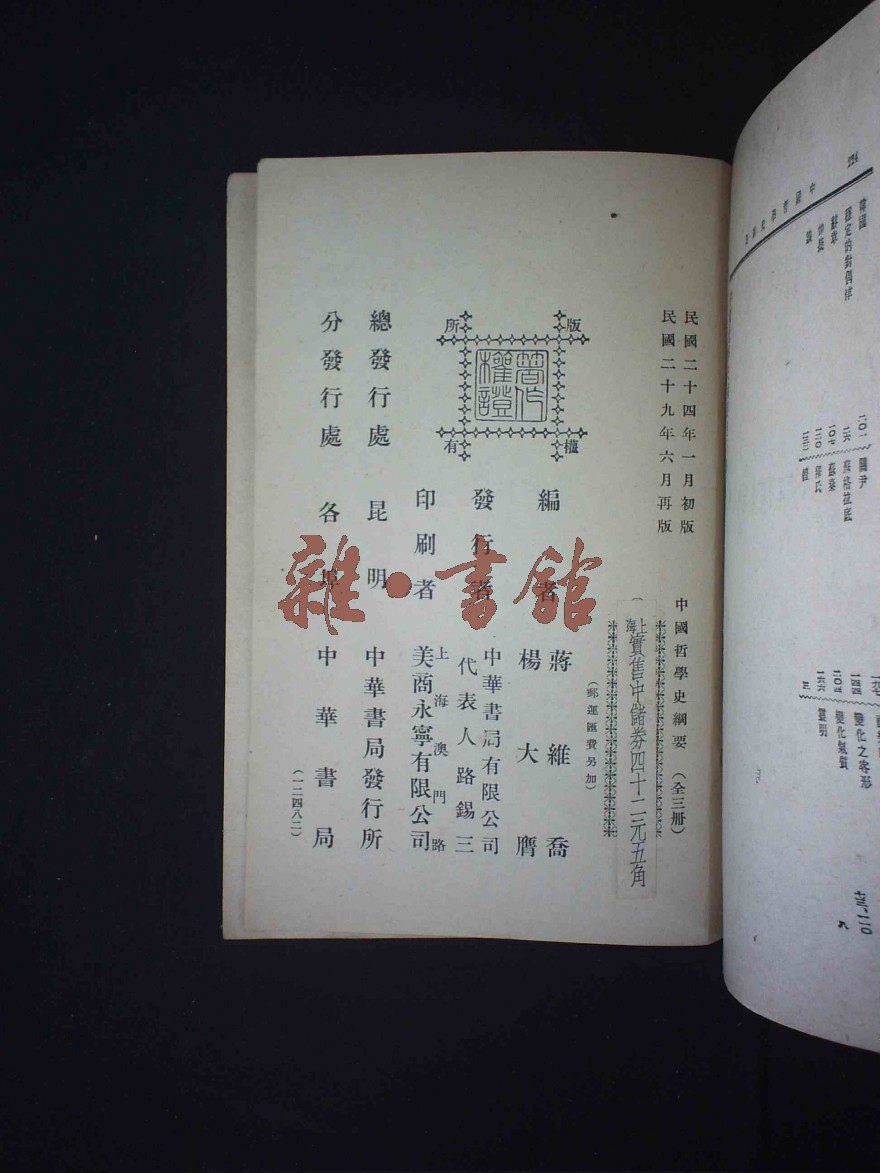 民國二十四年一月初版
民國二十九年六月再版
中國哲學史綱要（全三冊）
上海實售中儲券四十二元五角
（郵運匯費另加）
版權所有
著作權證
編者
蔣維喬
楊大膺
發行者
中華書局有限公司
代表人路錫三
印刷者
上海澳門路
美商永寧有限公司
總發行處 昆明 中華書局發行所
分發行處 各埠 中華書局
（一二四八二）
雜·書館
穩定的對偶律
蘇格拉底
關尹
變化之客形
變化氣質